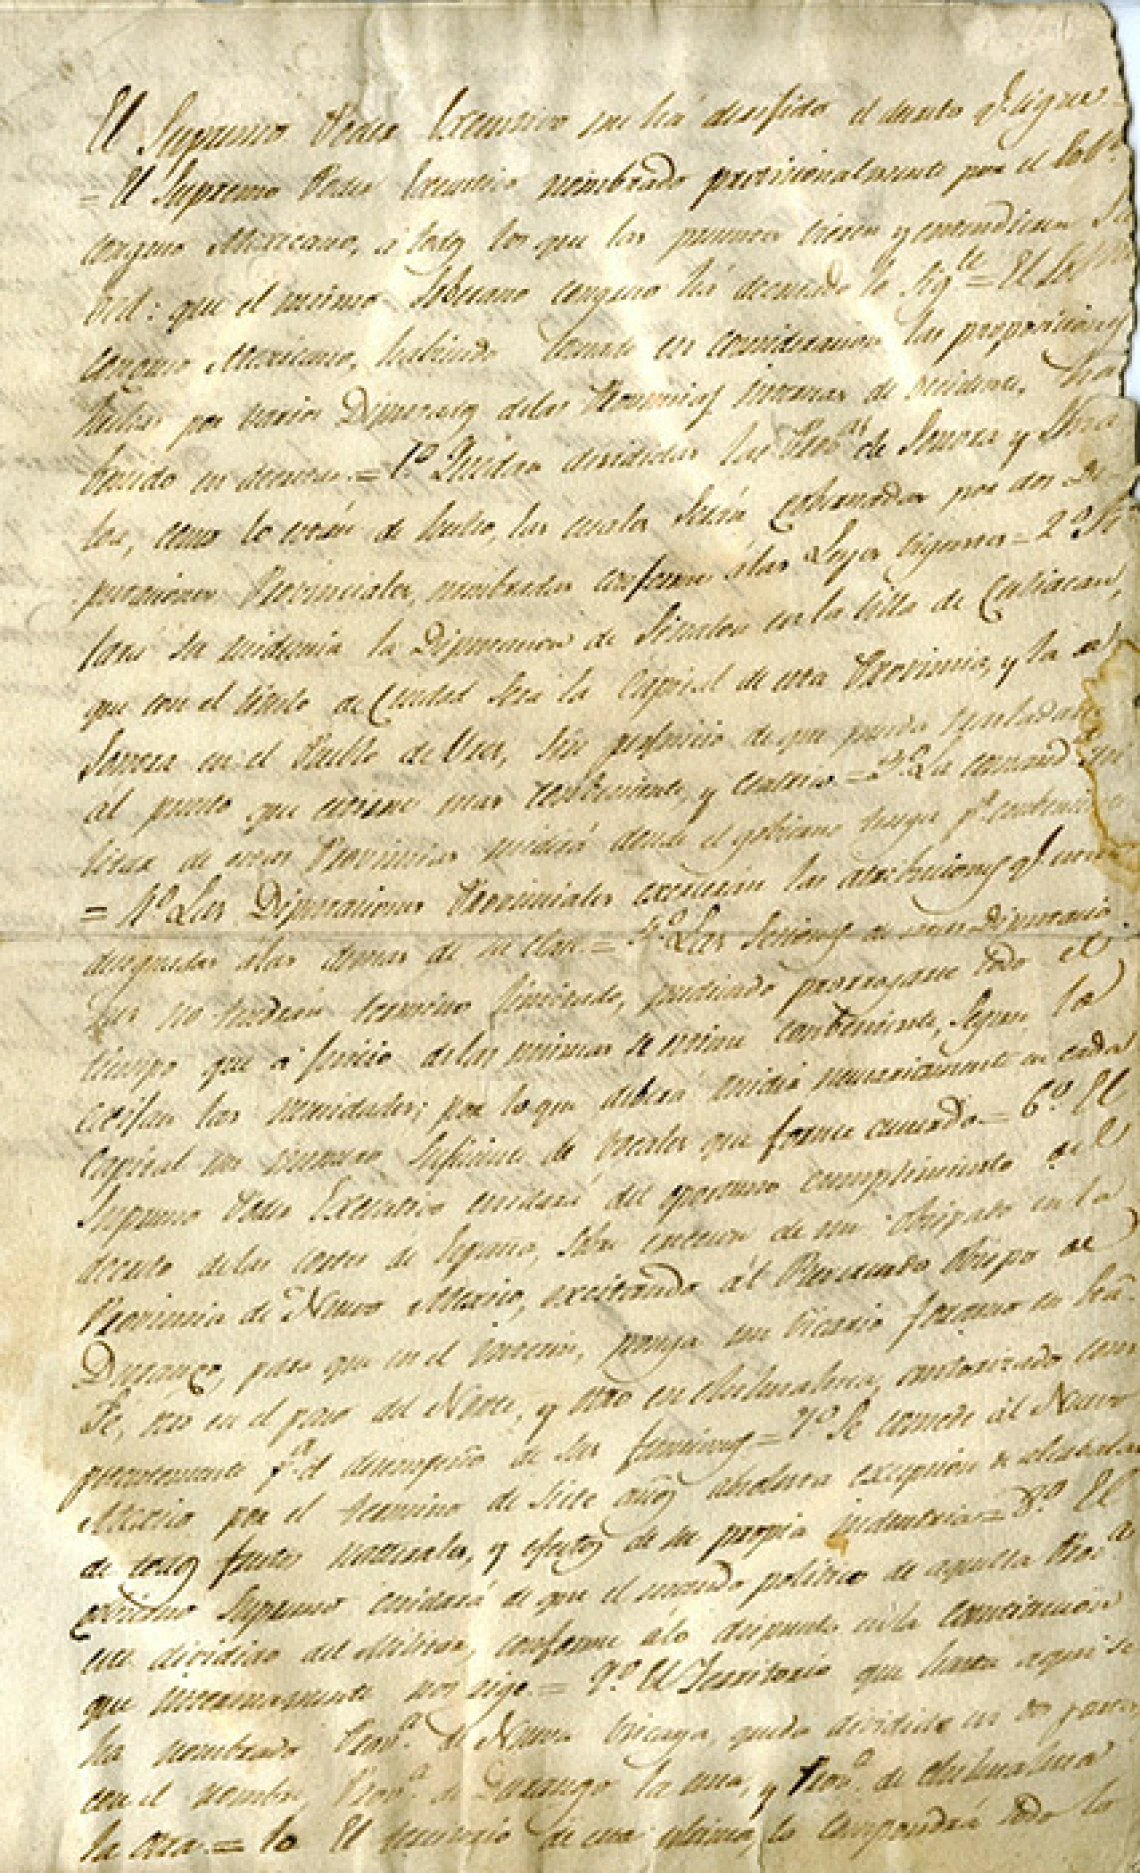 El Supremo Poder Executivo me ha dirijido el decreto q.e sigue
= El Supremo Poder Executivo nombrado provisionalmente por el Sob.no
Congreso Mexicano, á todos los que las presentes vieren y entendieren Sa
bed: que el mismo Soberano Congreso há decretado lo Sig.te = El Sob.no
Congreso Mexicano, habiendo tomado en consideracion las proposiciones
hechas por varios Diputados de las Provincias internas de occidente, ha
tenido en decretar. = 1.o Quedan divididas las Prov.as de Sonora y Sina
loa, como lo están de hecho, las cuales serán gobernadas por dos Di
putaciones Provinciales, nombradas conforme á las Leyes vigentes = 2.o Fi
jara su residencia la Diputacion de Sinaloa en la Villa de Culiacan,
que con el titulo de Ciudad será la Capital de esta Provincia, y la de
Sonora en el Pueblo de Ures, sin perjuicio de que pueda trasladarse
al punto que estime mas conveniente, y centrico = 3.o La comand.a mi
litar de estas Provincias residirá donde el gobierno tenga p.r conveniente
= 4.o Las Diputaciones Provinciales exercerán las atribuciones q.e
designadas á las demas de su clase. = 5.o Las Seciones de estas Diputacio
nes no tendrán termino limitado, pudiendo prorrogarse todo el
tiempo que á juicio de las mismas se estime conveniente, segun lo
exijan las necesidades; por lo que deberá residir necesariamente en cada
Capital un numero suficiente de vocales que forme acuerdo = 6.o El
Supremo Poder Executivo cuidará del oportuno cumplimiento del
decreto de las Cortes de España, sobre ereccion de un Obispado en la
Provincia de Nuevo Mexico, excitando al Reverendo Obispo de
Durango, para que en el interin, ponga un Vicario foraneo en Sta.
Fé, otro en el paso del Norte, y otro en Chihuahua, autorizado com
petentemente p.a el desempeño de sus funciones = 7.o Se concede al Nuevo
Mexico por el termino de siete años absoluta excepcion de alcabalas
de todos frutos naturales, y efectos de su propia industria = 8.o El
Govierno Supremo cuidará de que el mando politico de aquella Prov.a
esté dividido del Militar, conforme á lo dispuesto en la Constitucion
que interinamente nos rige. = 9.o El Territorio que hasta aqui se
ha nombrado Prov.a de Nueva Viscaya, queda dividido en dos partes,
con el nombre Prov.a de Durango la una, y Prov.a de Chihuahua
la otra. = 10 El territorio de esta ultima, lo compondrá todo lo